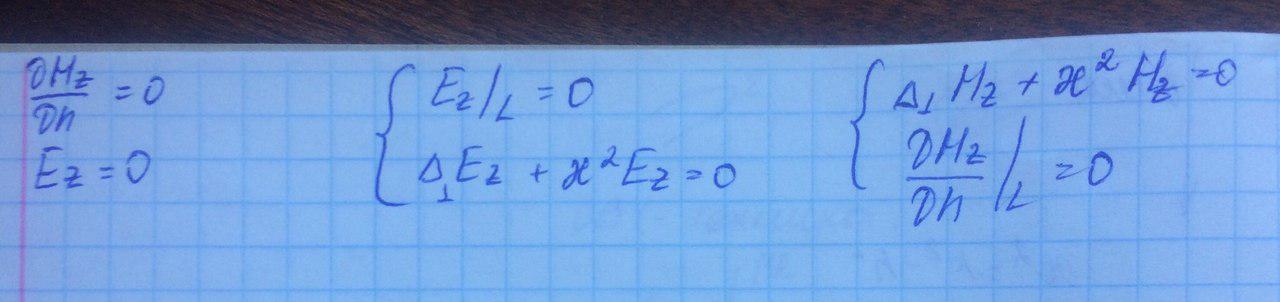 ∂Hz/∂n = 0
Ez = 0
{ Ez|L = 0
Δ⊥Ez + ϰ²Ez = 0
{ Δ⊥Hz + ϰ²Hz = 0
∂Hz/∂n|L = 0